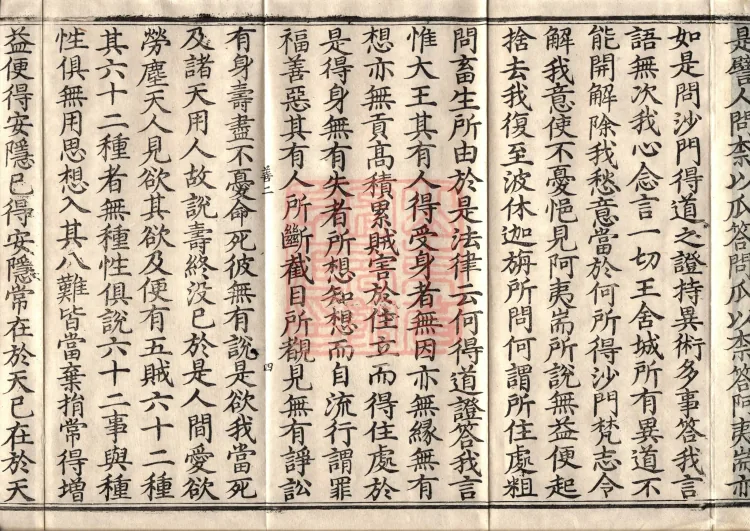 是譬人問柰以瓜答問瓜以柰答阿夷耑亦
如是問沙門得道之證持異術多事答我言
語無次我心念言一切王舍城所有異道不
能開解除我愁意當於何所得沙門梵志令
解我意使不憂悒見阿夷耑所說無益便起
捨去我復至波休迦旃所問何謂所住處粗
問畜生所由於是法律云何得道證答我言
惟大王其有人得受身者無因亦無緣無有
想亦無貢高積累賊害於住立而得住處於
是得身無有失者所想知想而自流行謂罪
福善惡其有人所斷截目所覩見無有諍訟
善二
四
有身壽盡不憂命死彼無有說是欲我當死
及諸天用人故說壽終没已於是人間愛欲
勞塵天人見欲其欲及便有五賊六十二種
其六十二種者無種性俱說六十二事與種
性俱無用思想入其八難皆當棄捐常得增
益便得安隱已得安隱常在於天已在於天